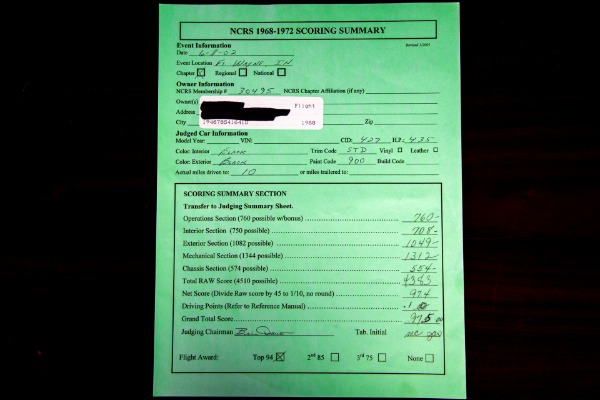 NCRS 1968-1972 SCORING SUMMARY
Event Information
Revised 3/2001
Date 6-8-02
Event Location Ft. WAYNE, IN
Chapter ☑ Regional ☐ National ☐
Owner Information
NCRS Membership # 30495 NCRS Chapter Affiliation (if any)
Owner(s) Flight
Address
City 194678S416410 1968 Zip
Judged Car Information
Model Year: VIN: CID: 427 H.P.: 435
Color: Interior BLACK Trim Code STD Vinyl ☐ Leather ☐
Color: Exterior BLACK Paint Code 900 Build Code
Actual miles driven to: 10 or miles trailered to:
SCORING SUMMARY SECTION
Transfer to Judging Summary Sheet.
Operations Section (760 possible w/bonus) 760-
Interior Section (750 possible) 708-
Exterior Section (1082 possible) 1049-
Mechanical Section (1344 possible) 1312-
Chassis Section (574 possible) 554-
Total RAW Score (4510 possible) 4383
Net Score (Divide Raw score by 45 to 1/10, no round) 97.4
Driving Points (Refer to Reference Manual) .1
Grand Total Score 97.5
Judging Chairman Tab. Initial
Flight Award: Top 94 ☒ 2nd 85 ☐ 3rd 75 ☐ None ☐